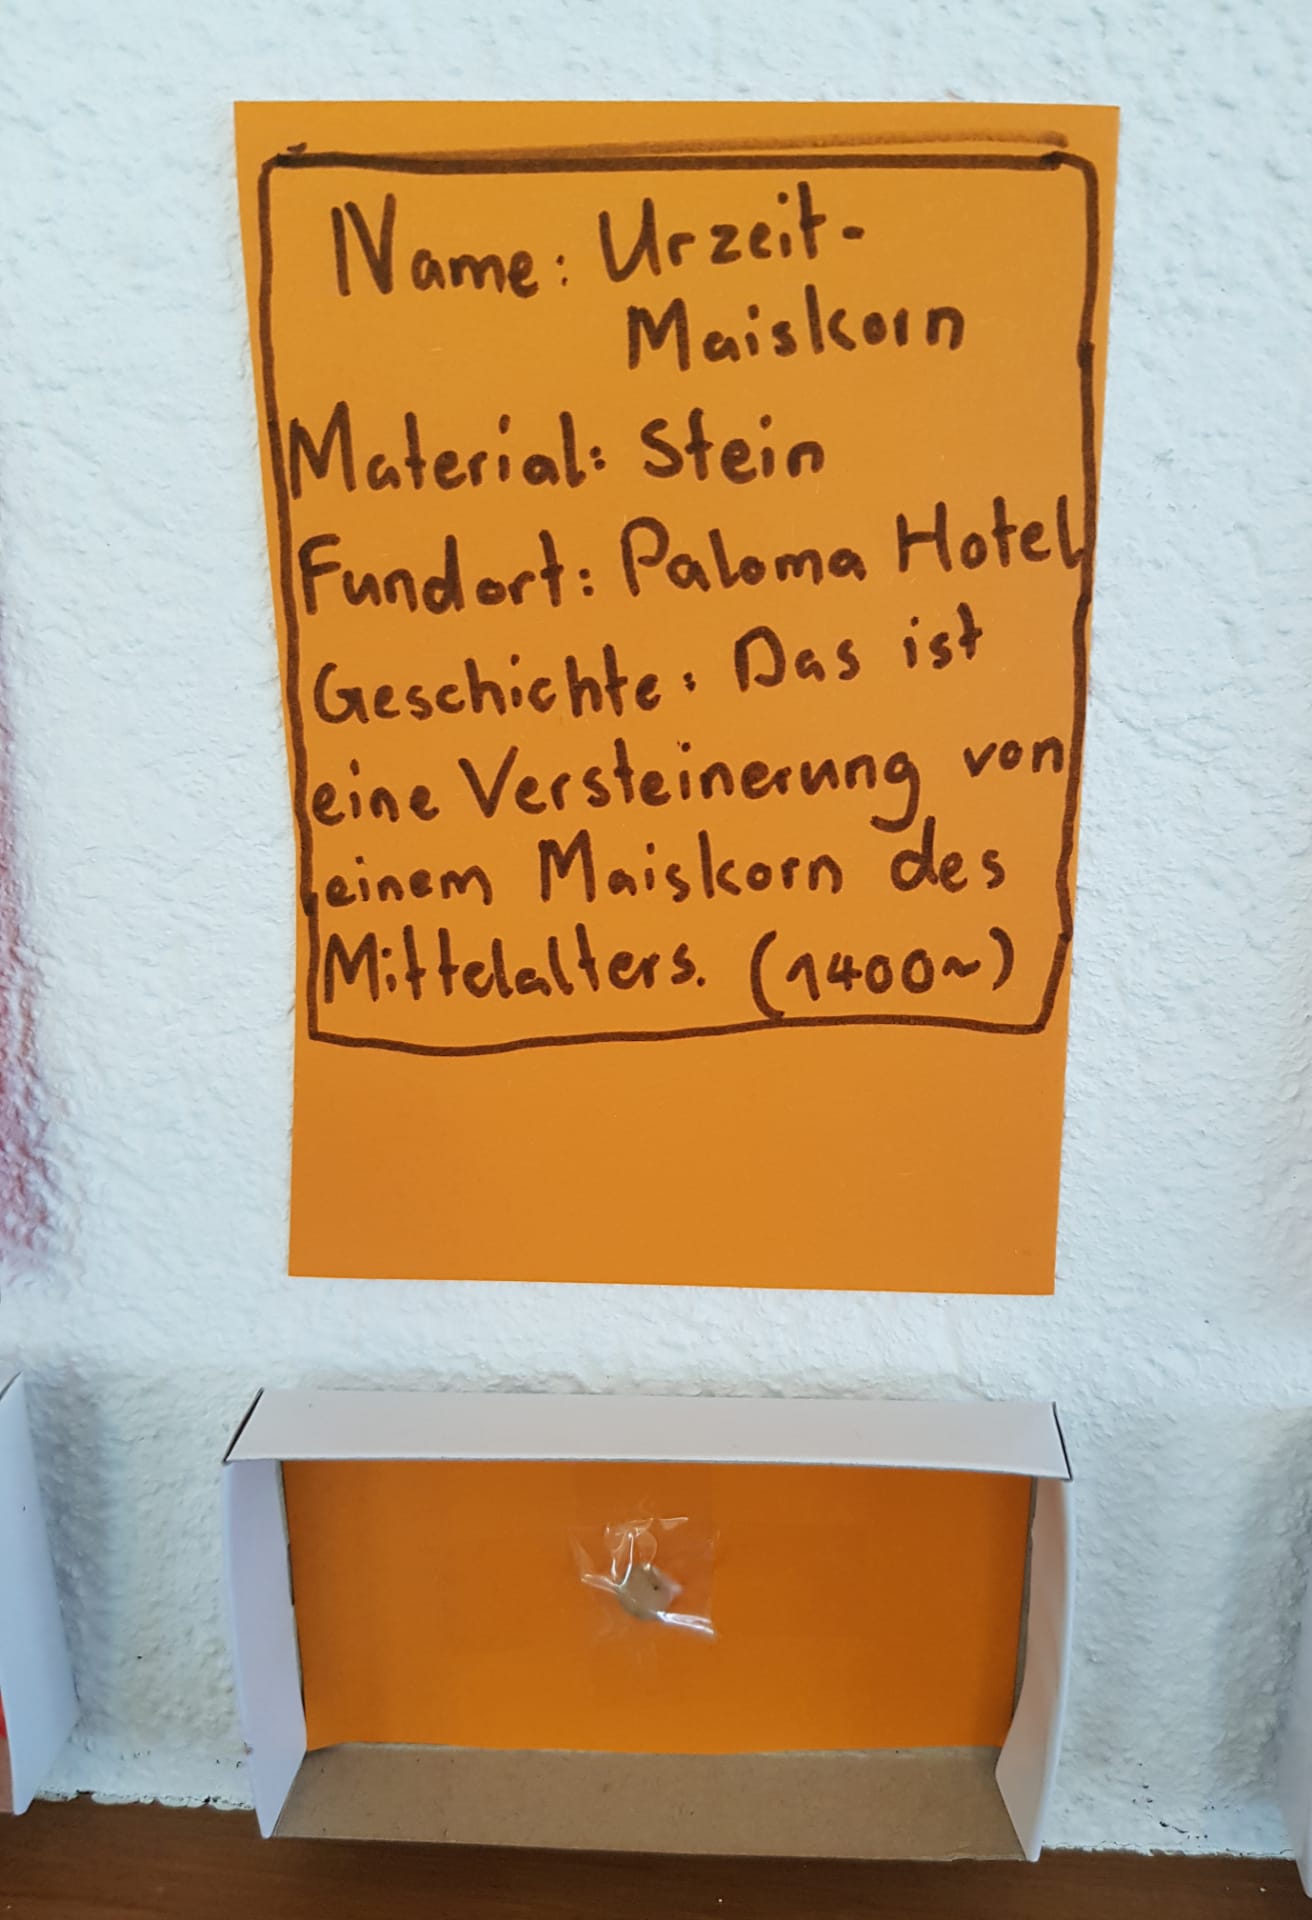 Name: Urzeit-
Maiskorn
Material: Stein
Fundort: Paloma Hotel
Geschichte: Das ist
eine Versteinerung von
einem Maiskorn des
Mittelalters. (1400~)